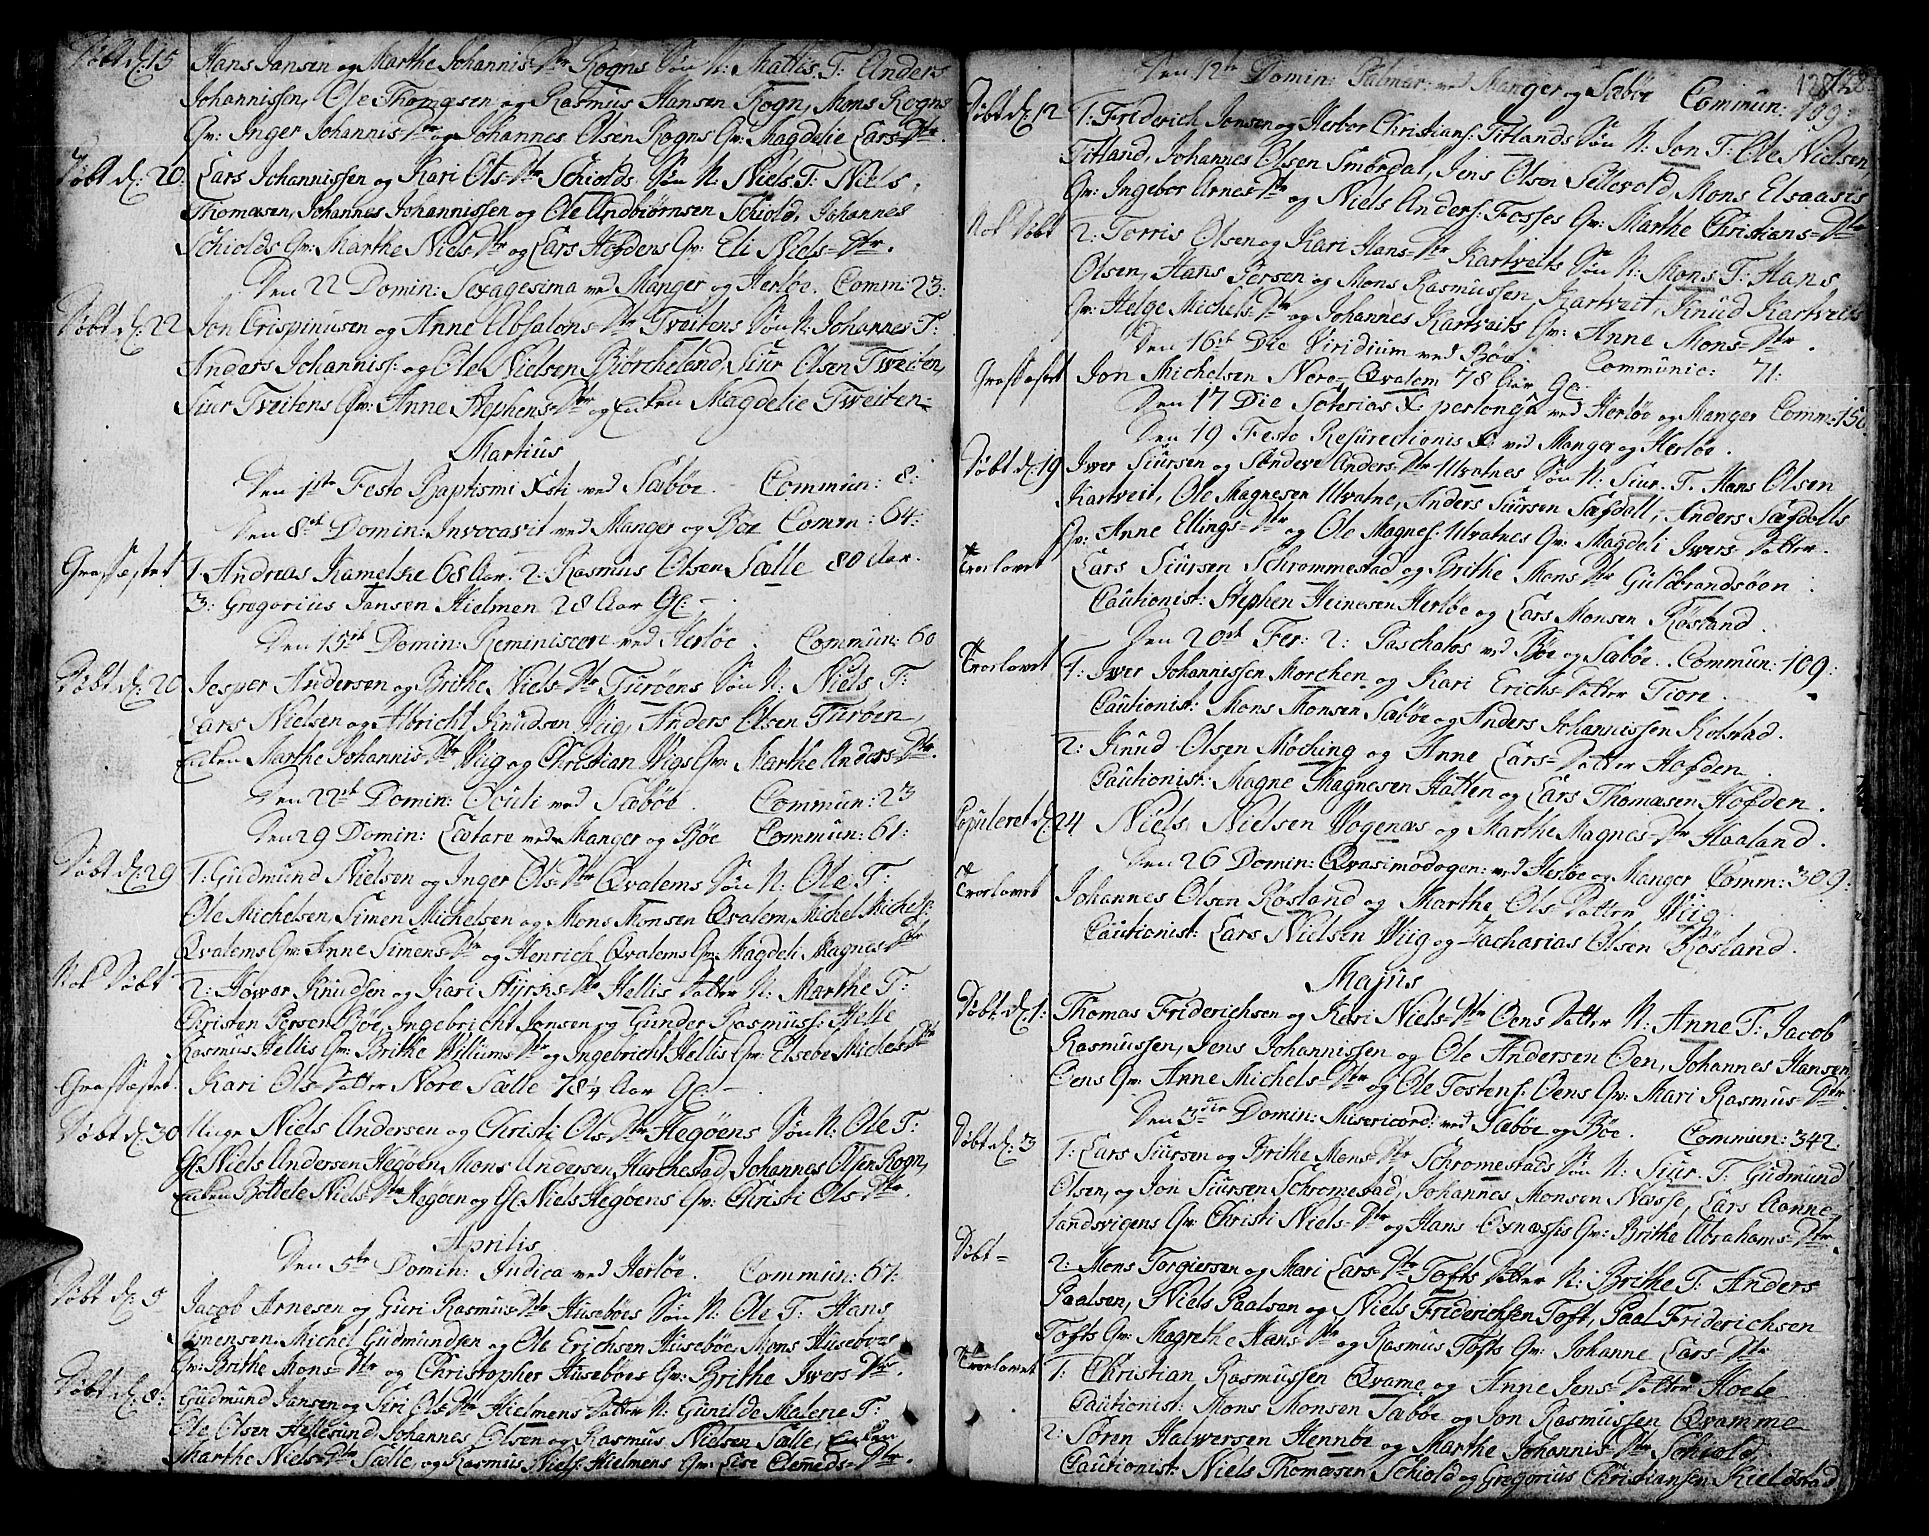 Døbt d: 15 Hans Jansen og Marthe Johannis-Dtr Rogns Søn N: Mattis. T: Anders
Johannissen, Ole Thomæsen og Rasmus Hansen Rogn, Mons Rogns
Qv: Inger Johannis-Dtr og Johannes Olsen Rogns Qv: Magdelie Lars-Dtr.
Døbt d: 20. Lars Johannissen og Kari Ols-Dtr Schiolds Søn N: Niels. T: Niels
Thomæsen, Johannes Johannissen og Ole Andbiørnsen Schiold, Johannes
Schiolds Qv: Marthe Niels-Dtr og Lars Høydens Qv: Eli Niels-Dtr.
Den 22 Domin: Sexagesima ved Manger og Herløe. Comm: 23.
Døbt d: 22 Jon Crispinusen og Anne Absalons-Dtr Tveitens Søn N: Johannes T:
Anders Johanniss: og Ole Nielsen Biörcheland, Siur Olsen Tweiten,
Siur Tveitens Qv: Anne Stephens-Dtr og Enken Magdelie Tweiten-
Martius
Den 1ste Festo Baptismi Xsti ved Sæbøe. Commun: 8:
Den 8de Domin: Invocavit ved Manger og Bøe Comm: 64:
Græsfæstet 1. Andreas Kamelske 68 Aar. 2: Rasmus Olsen Sælle 80 Aar.
3: Gregorius Jansen Hielmen 28 Aar Gl: -
Den 15de Domin: Reminiscere ved Herløe. Commun: 60
Døbt d: 20 Jesper Andersen og Brithe Niels-Dtr Turøens Søn N: Niels T:
Lars Nielsen og Albricht Knudsen Wiig, Anders Olsen Turøen,
Enken Marthe Johannis-Dtr Wiig og Christian Wigs Qv: Marthe Anders-Dtr.
Den 22de Domin: Oculi ved Sæbøe. Commun: 23
Den 29 Domin: Lætare ved Manger og Bøe Commun: 61:
Døbt d: 29 1: Gudmund Nielsen og Inger Ols-Dtr Qvalems Søn N: Ole T:
Ole Michelsen, Simen Michelsen og Mons Monsen Qvalem, Michel Michels:
Qvalems Qv: Anne Simens-Dtr og Henrich Qvalems Qv: Magdeli Magnes-Dtr
Nok Døbt 2: Howar Knudsen og Kari Hyrsis-Dtr Hellis Datter N: Marthe T:
Christen Persen Bøe, Ingebricht Jonsen og Gunder Rasmuss: Helle
Rasmus Hellis Qv: Brithe Williums-Dtr og Ingebricht Hellis Qv: Elsebe Michels-Dtr
Græsfæstet. Kari Ols-Datter Nore Sælle 78¼ Aar Gl: -
Døbt d: 30 Unge Niels Andersen og Christi Ols-Dtr Hegøens Søn N: Ole T:
Gl: Niels Andersen Hegøen, Mons Andersen Harthestad, Johannes Olsen Rogn,
Enken Bottele Niels-Dtr Hegøen og Gl: Niels Hegøens Qv: Christi Ols-Dtr.
Aprilis
Den 5te Domin: Judica ved Herløe. Commun: 67:
Døbt d: 5 Jacob Arnesen og Guri Rasmus-Dtr Husebøes Søn N: Ole T: Hans
Simensen, Michel Gudmundsen og Ole Erichsen Husebøe, Mons Husebøes
Qv: Brithe Mons-Dtr og Christopher Husebøes Qv: Brithe Iwers-Dtr.
Døbt d: 8: Gudmund Jansen og Siri Ols-Dtr Hielmens Datter N: Gunilde Malene T:
Ole Olsen Hellesund, Johannes Olsen og Rasmus Nielsen Sælle, Enken
Marthe Niels-Dtr Sælle, og Rasmus Niels: Hielmens Qv: Lise Clemeds-Dtr.
128
Den 12te Domin: Palmar: ved Manger og Sæbøe Commun: 189:
Døbt d: 12 1: Friderich Jonsen og Herbor Christians: Titlands Søn N: Jon T: Ole Nielsen
Titland, Johannes Olsen Smørdal, Jens Olsen Sellevold, Mons Elsaasis
Qv: Ingebor Arnes-Dtr og Niels Anders: Fosses Qv: Marthe Christians-Dtr
Nok Døbt 2: Torris Olsen og Kari Hans-Dtr Kartveits Søn N: Mons T: Hans
Olsen, Hans Persen og Mons Rasmussen, Kartveit, Knud Kartveits
Qv: Helge Michels-Dtr og Johannes Kartveits Qv: Anne Mons-Dtr.
Den 16de Die Viridium ved Bøe. Communic: 71:
Græsfæstet Jon Michelsen Nere-Qvalem 78 Aar Gl:
Den 17 Die Soterias X: perlongat: ved Herløe og Manger Comm: 150.
Den 19 Festo Resurectionis X: ved Manger og Herløe.
Døbt d: 19 Iwer Siursen og Sændeve Anders-Dtr Ulvatnes Søn N: Siur. T: Hans Olsen
Kartveit, Ole Magnesen Ulvatne, Anders Siursen Sæfdall, Anders Sæfdalls
Qv: Anne Ellings-Dtr og Ole Magnes: Ulvatnes Qv: Magdeli Iwers-Datter.
Troelovet Lars Siursen Schrommestad og Brithe Mons-Dtr Guldbrandsøen
Cautionist: Stephen Heinesen Herløe og Lars Monsen Røsland.
Den 20de Fer: 2: Paschatos ved Bøe og Sæbøe. Commun: 109:
Troelovet 1: Iwer Johannissen Morchen og Kari Erichs-Datter Fiore.
Cautionist: Mons Monsen Sæbøe og Anders Johannissen Kolstad.
2: Knud Olsen Møching og Anne Lars-Datter Høfden.
Cautionist: Magne Magnesen Hatten og Lars Thomæsen Høfden.
Copuleret d: 24 Niels Nielsen Vogenæs og Marthe Magnes-Dtr Haaland.
Den 26 Domin: Qvasimodogen: ved Herløe og Manger Comm: 309:
Troelovet Johannes Olsen Røsland og Marthe Ols Datter Wiig.
Cautionist: Lars Nielsen Wiig og Zacharias Olsen Røsland.
Majus
Døbt d: 1: Thomas Friderichsen og Kari Niels-Dtr Oens Datter N: Anne T: Jacob
Rasmussen, Jens Johannissen og Ole Andersen Oen, Johannes Hansen
Oens Qv: Anne Michels-Dtr og Ole Tostens: Oens Qv: Mari Rasmus-Dtr.
Den 3die Domin: Misericord: ved Sæbøe og Bøe. Commun: 342:
Døbt d: 3 1: Lars Siursen og Brithe Mons-Dtr Schromestads Søn N: Siur. T: Gudmund
Olsen, og Jon Siursen Schromestad, Johannes Monsen Næsse, Lars Aanne-
landsvigens Qv: Christi Niels-Dtr og Hans Osnæssis Qv: Brithe Abrahams-Dtr.
Døbt- 2: Mons Torgiersen og Mari Lars-Dtr Tofts Datter N: Brithe T: Anders
Paalsen, Niels Paalsen og Niels Friderichsen Toft, Paal Friderichsen
Tofts Qv: Magrethe Hans-Dtr og Rasmus Tofts Qv: Johanne Lars-Dtr
Troelovet 1: Christian Rasmussen Qvame og Anne Jens-Datter Hoele
Cautionist: Mons Monsen Sæbøe og Jon Rasmussen Qvamme
2: Søren Halwersen Hennøe og Marthe Johannis-Dtr Schiold
Cautionist: Niels Thomæsen Schiold og Gregorius Christiansen Kielstad